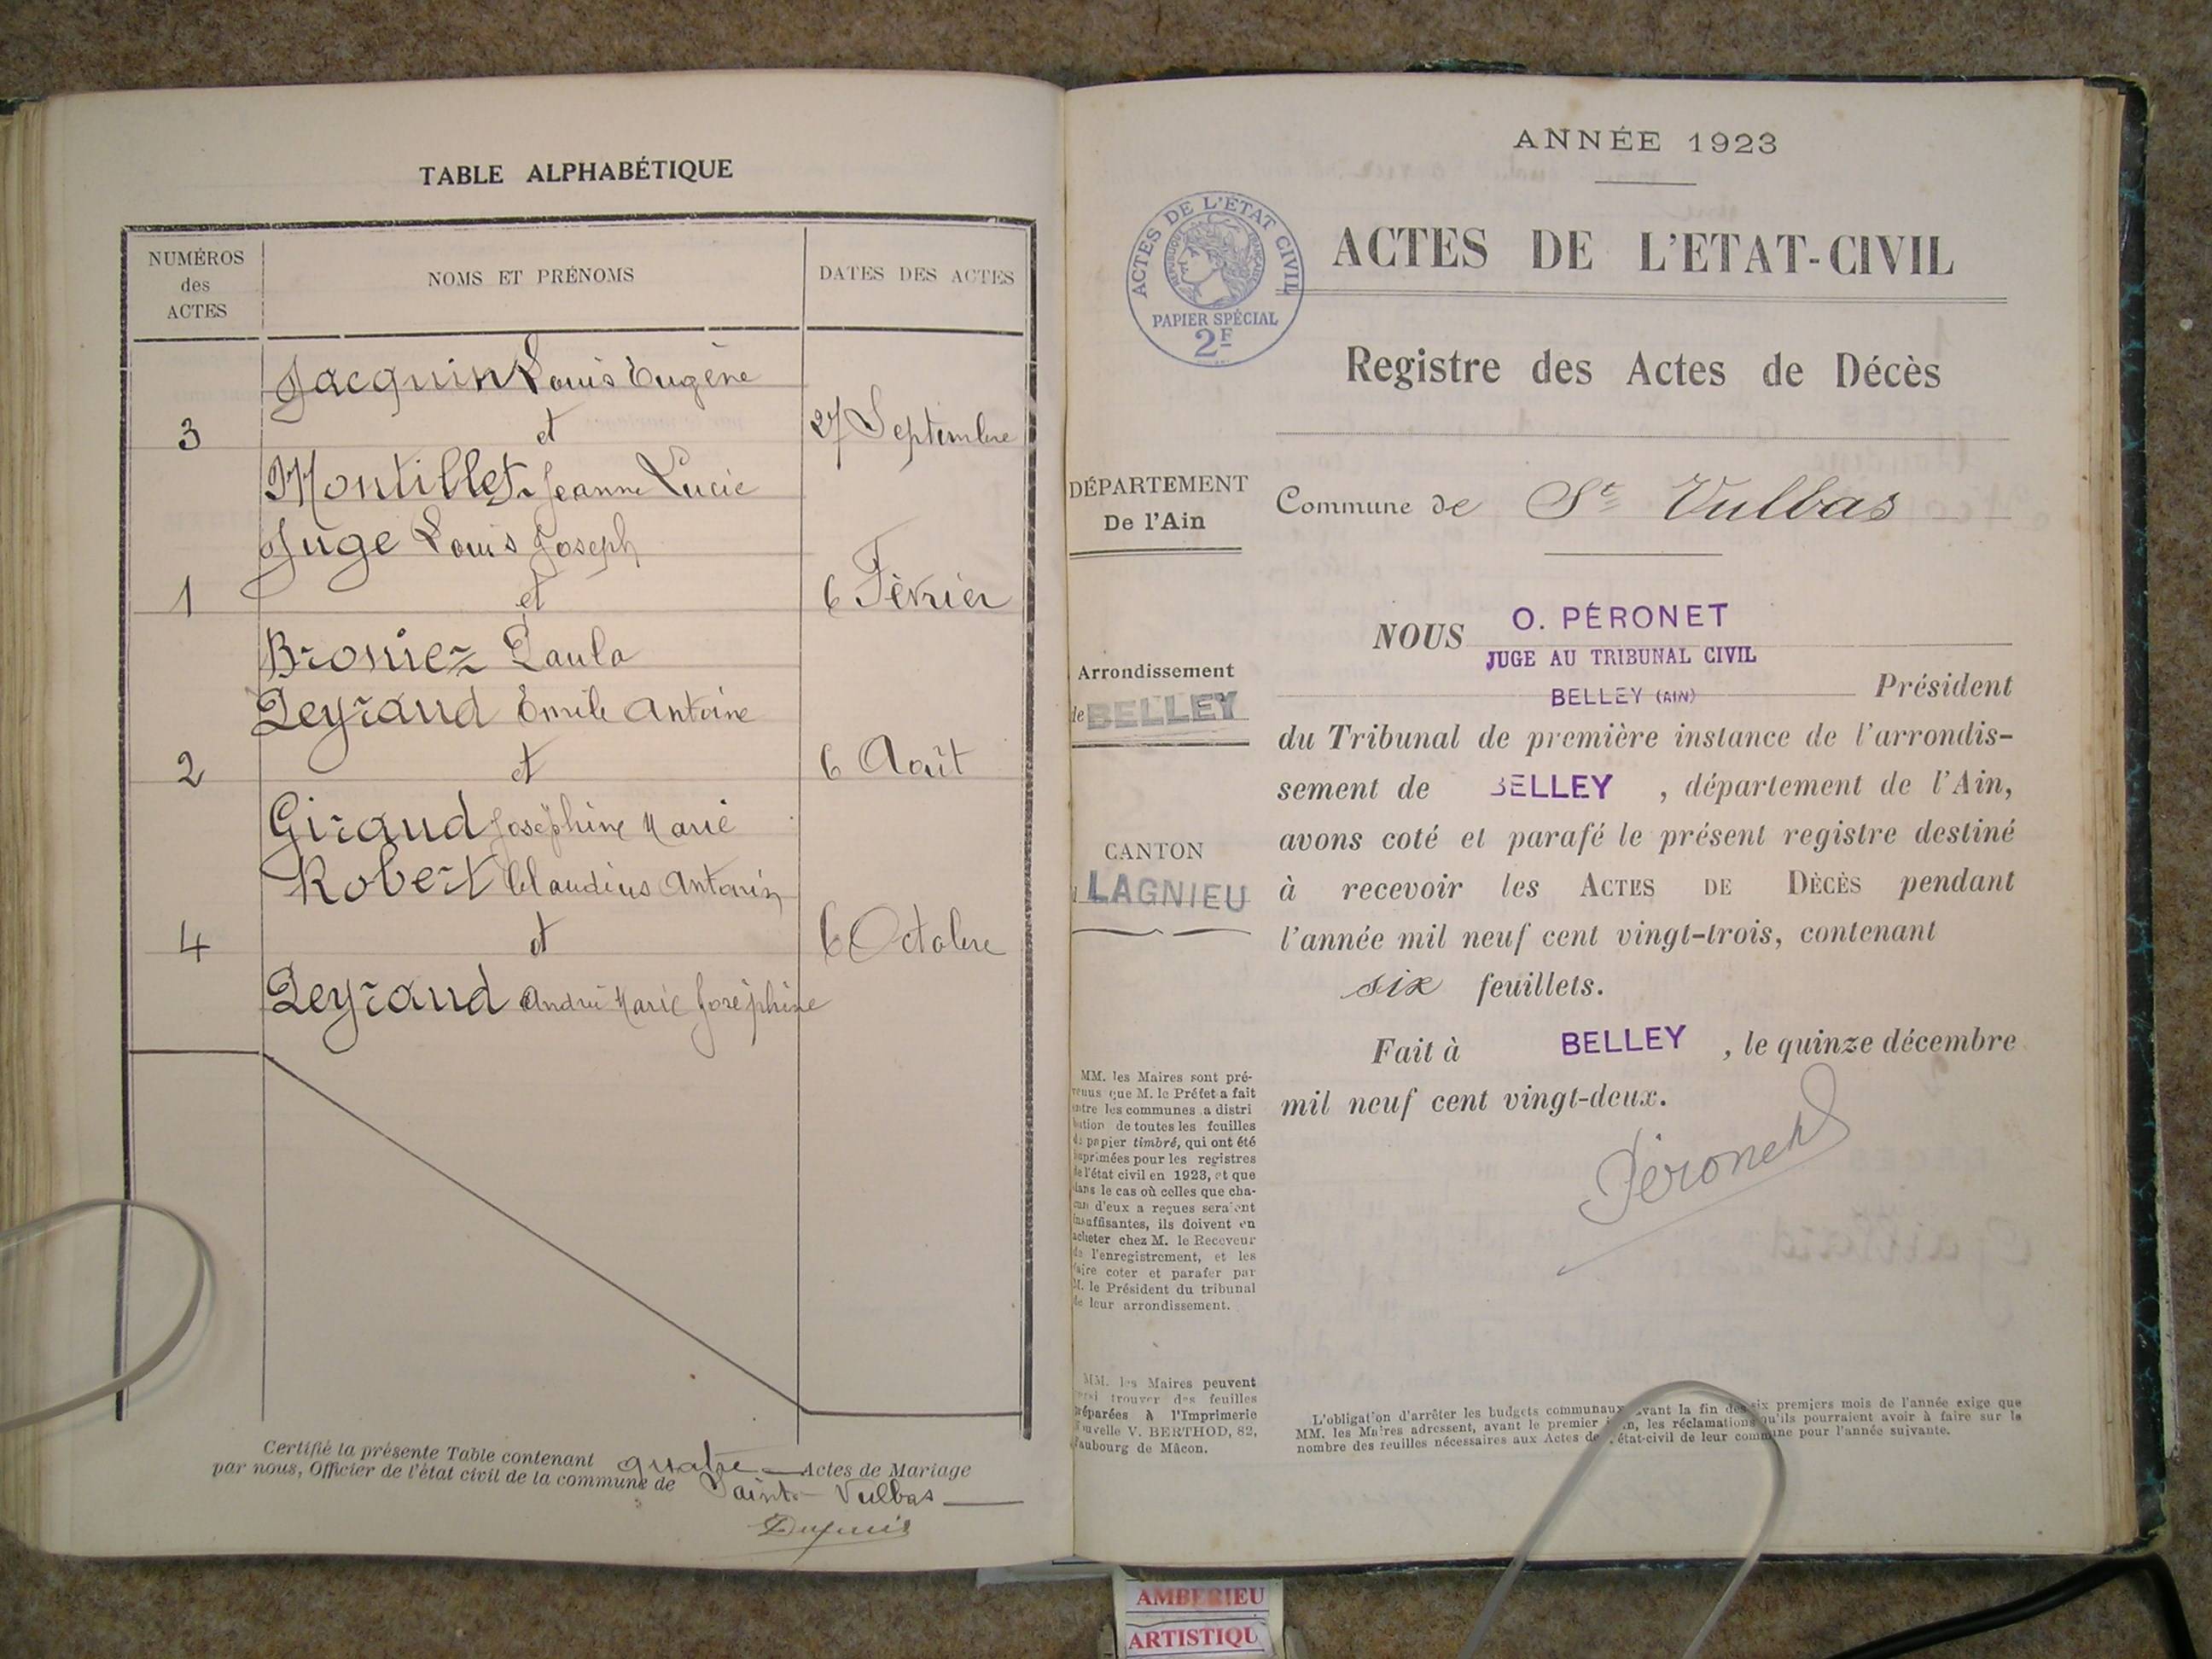 TABLE ALPHABÉTIQUE
NUMÉROS
des
ACTES
NOMS ET PRÉNOMS
DATES DES ACTES
Jacquin Louis Eugène
3 et 27 Septembre
Montillet Jeanne Lucie
Juge Louis Joseph
1 et 6 Février
Broniez Paula
Peyraud Emile Antoine
2 et 6 Août
Giraud Joséphine Marie
Robert Claudius Antonin
4 et 6 Octobre
Peyraud Marie Joséphine
Certifié la présente Table contenant quatre Actes de Mariage
par nous, Officier de l'état civil de la commune de Saint-Vulbas
Dupuis
ANNÉE 1923
ACTES DE L'ÉTAT CIVIL
RÉPUBLIQUE FRANÇAISE
PAPIER SPÉCIAL
2F
ACTES DE L'ETAT-CIVIL
Registre des Actes de Décès
DÉPARTEMENT
De l'Ain
Commune de St Vulbas
Arrondissement
de BELLEY
CANTON
LAGNIEU
NOUS O. PÉRONET
JUGE AU TRIBUNAL CIVIL
BELLEY (AIN) Président
du Tribunal de première instance de l'arrondis-
sement de BELLEY , département de l'Ain,
avons coté et parafé le présent registre destiné
à recevoir les ACTES DE DÈCÈS pendant
l'année mil neuf cent vingt-trois, contenant
six feuillets.
Fait à BELLEY , le quinze décembre
mil neuf cent vingt-deux.
Péronet
MM. les Maires sont pré-
venus que M. le Préfet a fait
entre les communes a distri
bution de toutes les feuilles
du papier timbré, qui ont été
imprimées pour les registres
de l'état civil en 1923, et que
dans le cas où celles que cha-
cun d'eux a reçues seraient
insuffisantes, ils doivent en
acheter chez M. le Receveur
de l'enregistrement, et les
faire coter et parafer par
M. le Président du tribunal
de leur arrondissement.
MM. les Maires peuvent
trouver des feuilles
préparées à l'Imprimerie
Nouvelle V. BERTHOD, 82,
Faubourg de Mâcon.
L'obligation d'arrêter les budgets communaux avant la fin des six premiers mois de l'année exige que
MM. les Maires adressent, avant le premier juin, les réclamations qu'ils pourraient avoir à faire sur le
nombre des feuilles nécessaires aux Actes de l'état-civil de leur commune pour l'année suivante.
AMBERIEU
ARTISTIQU